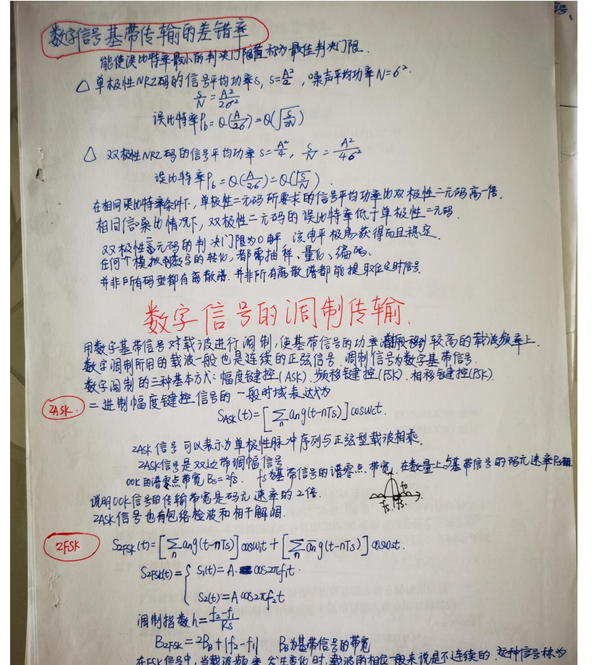 数字信号基带传输的差错率
能使误比特率最小的判决门限值称为最佳判决门限.
△ 单极性NRZ码的信号平均功率S, S=A²/2, 噪声平均功率N=σ².
S/N = A²/2σ²
误比特率Pb=Q(A/2σ)=Q(√(S/2N))
△ 双极性NRZ码的信号平均功率S=A²/4, S/N=A²/4σ²
误比特率Pb=Q(A/2σ)=Q(√(S/N)).
在相同误比特率条件下,单极性二元码所要求的信号平均功率比双极性二元码高一倍.
相同信噪比情况下,双极性二元码的误比特率低于单极性二元码.
双极性二元码的判决门限为0电平 该电平极易获得而且稳定.
任何个模拟到数字的转化,都需抽样、量化、编码.
并非所有码型都有离散谱.并非所有离散谱都能提取位定时信号
数字信号的调制传输.
用数字基带信号对载波进行调制,使基带信号的功率谱搬移到较高的载波频率上.
数字调制所用的载波一般也是连续的正弦信号 调制信号为数字基带信号.
数字调制的三种基本方式:幅度键控(ASK).频移键控(FSK).相移键控(PSK).
2ASK. 二进制幅度键控信号的一般时域表达式为
SASK(t)=[∑n ang(t-nTs)]cosωct.
2ASK信号可以表示为单极性脉冲序列与正弦型载波相乘.
2ASK信号是双边带调幅信号
OOK的谱零点带宽Bs=2fs. fs为基带信号的谱零点带宽,在数量上与基带信号的码元速率Rs相
说明OOK信号的传输带宽是码元速率的2倍.
2ASK信号也有包络检波和相干解调.
2FSK S2FSK(t)=[∑n ang(t-nTs)]cosω1t+[∑n āng(t-nTs)]cosω2t.
S2FSK(t)={ S1(t)=A cos2πf1t
S2(t)=A cos2πf2t
调制指数h=f2-f1/Rs
B2FSK=2Bb+|f2-f1| Bb为基带信号的带宽
在FSK信号中,当载波频率发生变化时,载波的相位一般来说是不连续的.这种信号称为